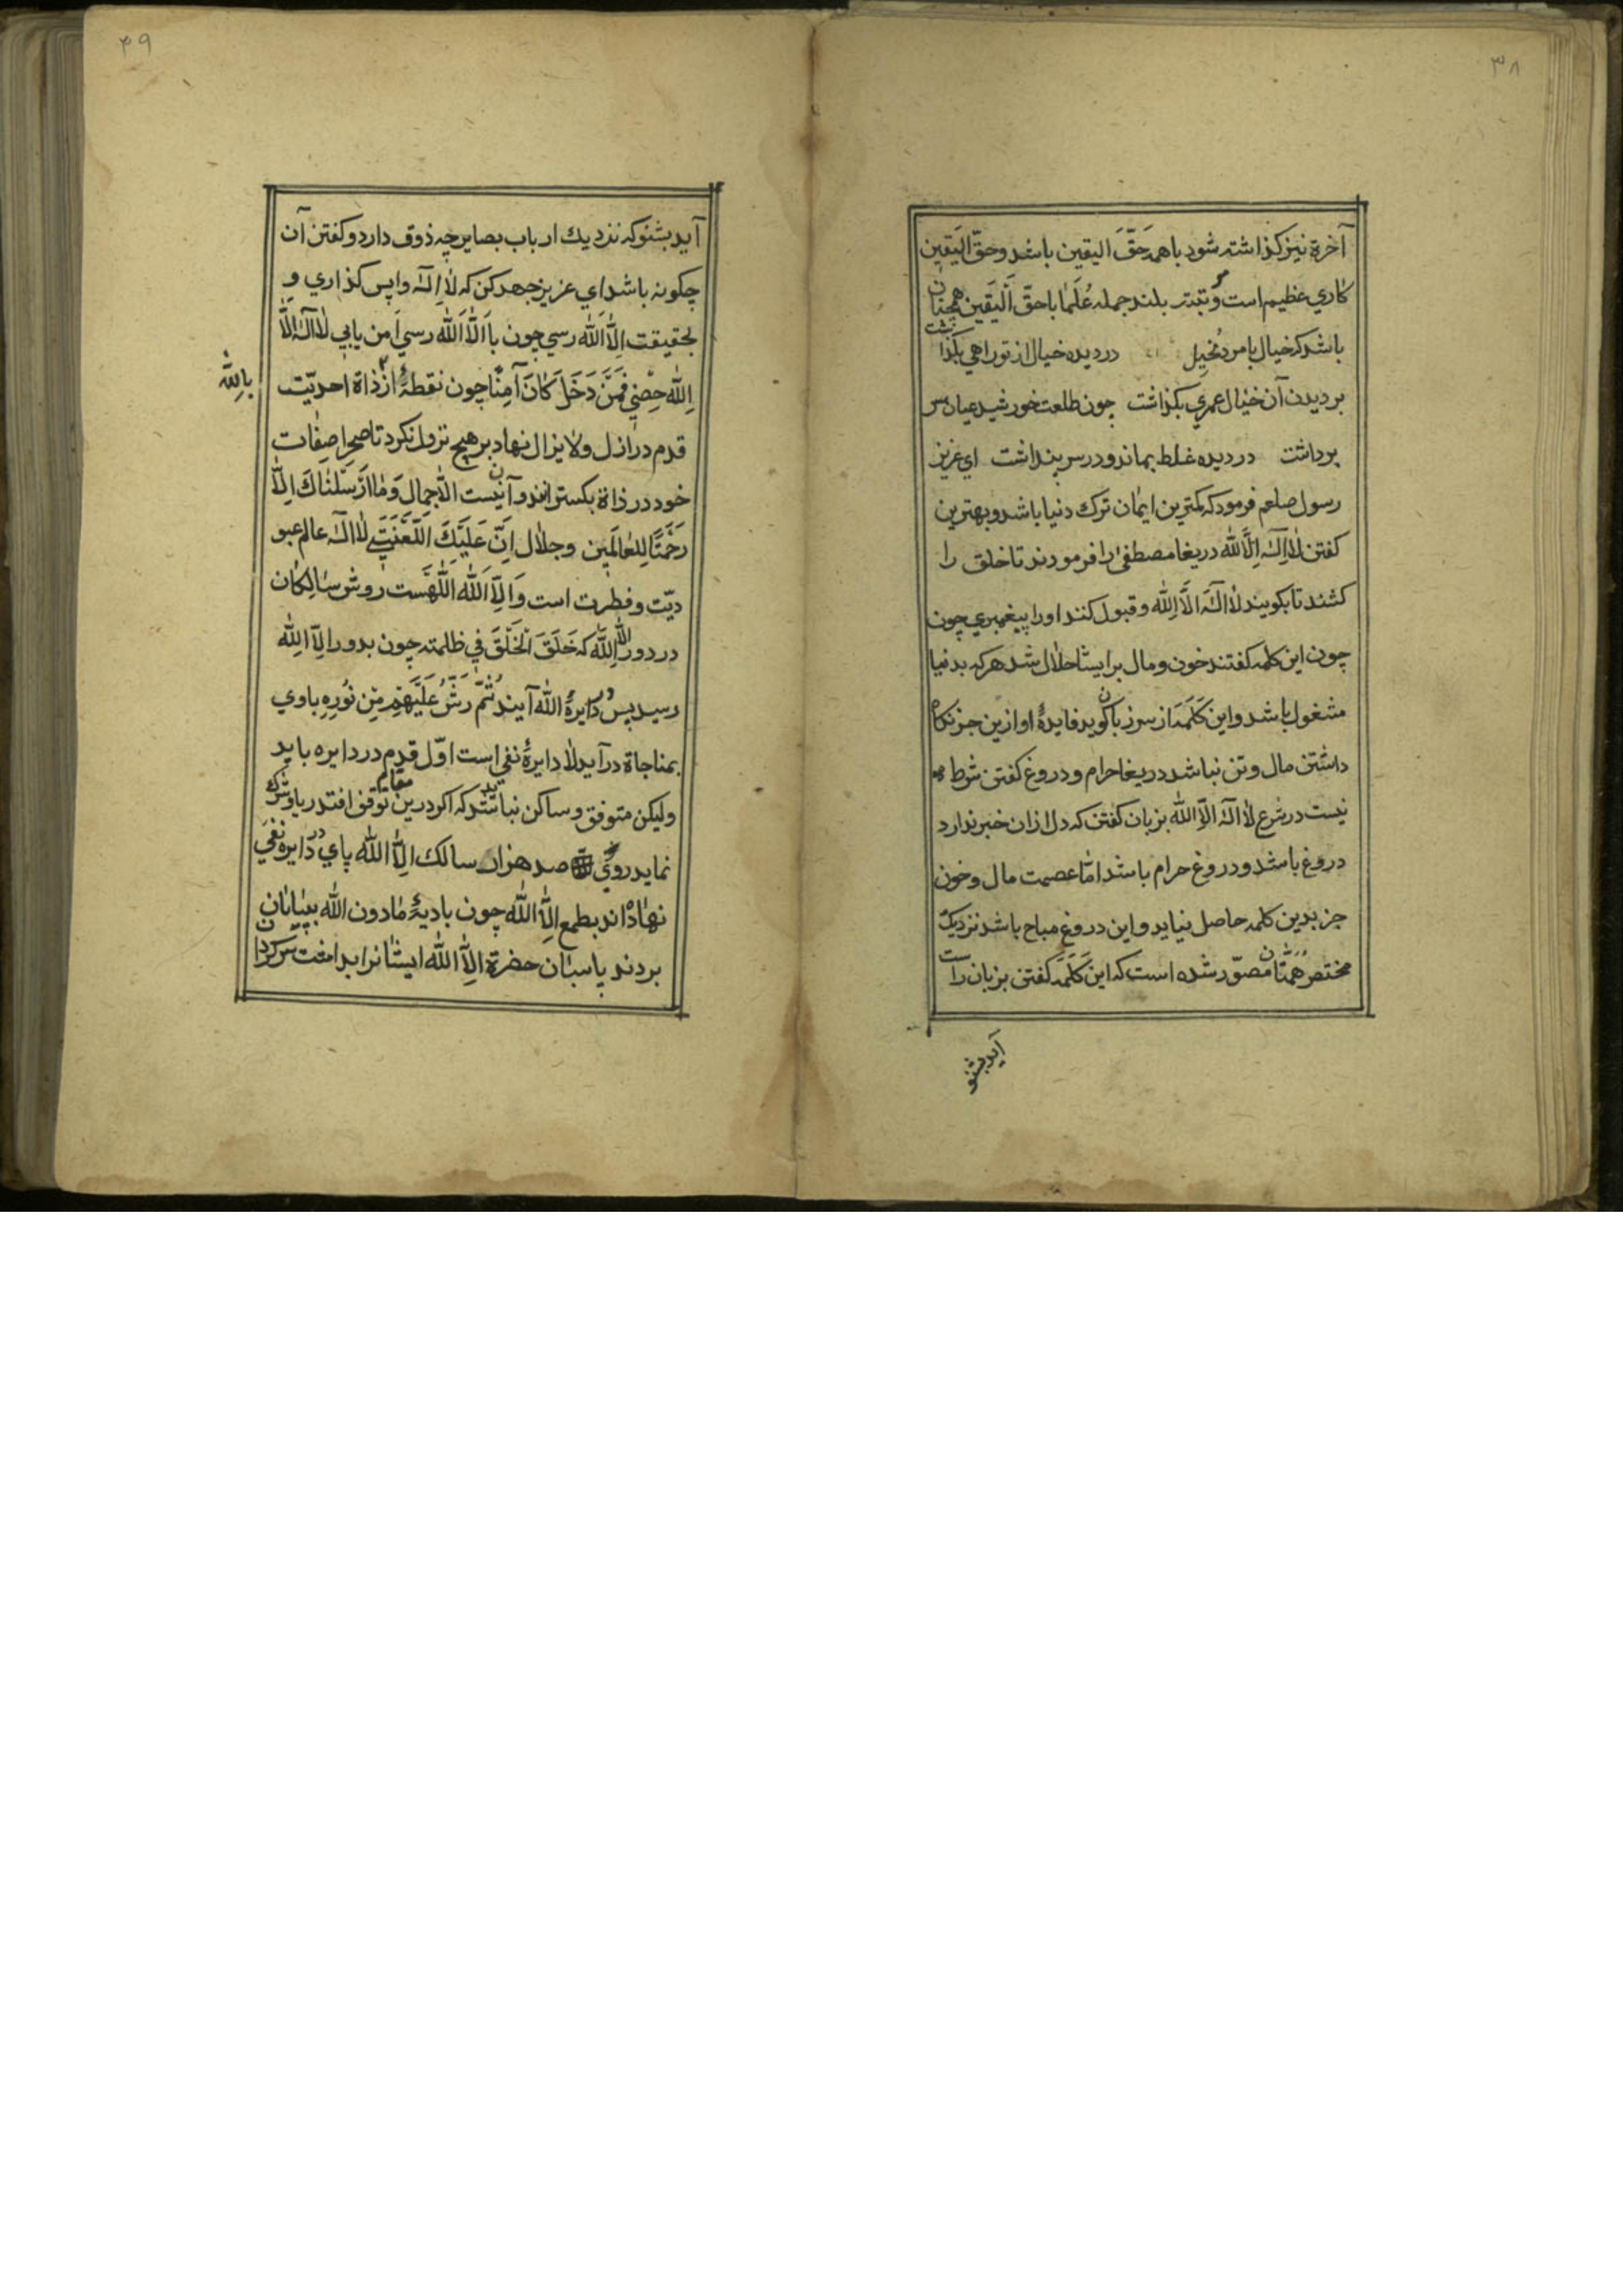 ۳۸
آخرة نیز کذاشته شود باهمه حَقَّ الیقین باشد وحقّ الیَقین
کاري عظیم است و مرتبتۀ بلند جمله عُلَما باحقّ اَلیَقین همچنان
باشد که خیال بامرد مخیل دردیده خیال از تو راهی بکذاشت
بردیدن آن خیال عمري بکذاشت چون طلعت خورشید عیان سر
برداشت دردیده غلط بماند و درسر پنداشت اي عزیز
رسول صلعم فرمود که کمترین ایمان ترك دنیا باشد و بهترین
کفتن لاٰاِلٰهَ اِلَّاالله دریغا مصطفیٰ را فرمودند تاخلق را
کشند تا بکویند لاٰاِلٰهَ اِلَّاالله و قبول کنند اورا پیغمبري چون
چون این کلمه کفتند خون و مال برایشا حلال شد هرکه بدنیا
مشغول باشد و این کَلَمَه از سرزبان کوید فایدۀ او ازین جز نکاه
داشتن مال و تن نباشد دریغا حرام و دروغ کفتن شرط
نیست در شرع لاٰاِلٰهَ اِلَّاالله بزبان کفتن که دل ازان خبر ندارد
دروغ باشد و دروغ حرام باشد امّا عصمت مال و خون
جز بدین کلمه حاصل نیاید و این دروغ مباح باشد نزدیک
مختصر همتان مصوّر شده است که این کَلَمَه کفتن بزبان راست
آید بشنو
۳۹
آید بشنو که نزدیك ارباب بصایر چه ذوق دارد و کفتن آن
چکونه باشد اي عزیز جهد کن که لاٰاِلٰه واپس کذاري و
بحقیقت اِلَّااَلله رسي چون باِلَّااَلله رسي اَمن یابي لاٰاِلٰهَ اِلَّا
اِلله حِصْنِي فَمَنْ دَخَلَ کَانَ آمِنًا چون نقطۀ از ذاة احدیّت
بِالله
قدم در ازل و لایزال نهاد بر هیچ نزول نکرد تا صحرا صفات
خود در ذاة بکسترانند و آن نیست الّا جمال وَمٰا اَرْسَلْنٰاكَ اِلّٰا
رَحْمَتًا لِلعٰالَمِین و جلال اِنَّ عَلَیْكَ اَللَّعْنَتَي لاٰاِلٰه عالم عبو
دیّت و فطرت است وَاِلّٰا اَلله اللّهست روش سٰالِکٰان
در دور اِلَّاالله که خَلَقَ اَلْخَلْقَ فِي ظلمته چون بدور اِلَّاالله
رسید پس در دایرۀ الله آیند ثُمَّ رَشَّ عَلَیْهِم مِّن نُورِهِ باوي
بمناجاة درآید لا دایرۀ نفي است اوّل قدم در دایره باید
ولیکن متوفق و ساکن نباشند که اکر درین مقام توقف افتد ریا و شرك
نماید روي صد هزار سالك اِلَّاالله پاي در دایره نَفي
نهاده‌اند بطمع اِلَّاالله چون بادیۀ مٰادون الله بپٰایان
بردند پاسبٰان حضرة اِلَّاالله ایشٰانرا بداشت سرکردان